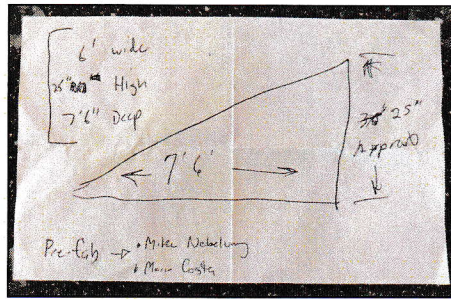 6' wide
25" High
7'6" Deep
25"
Approx
7'6'
Pre-fab → • Mike Nebelung
• Mario Costa